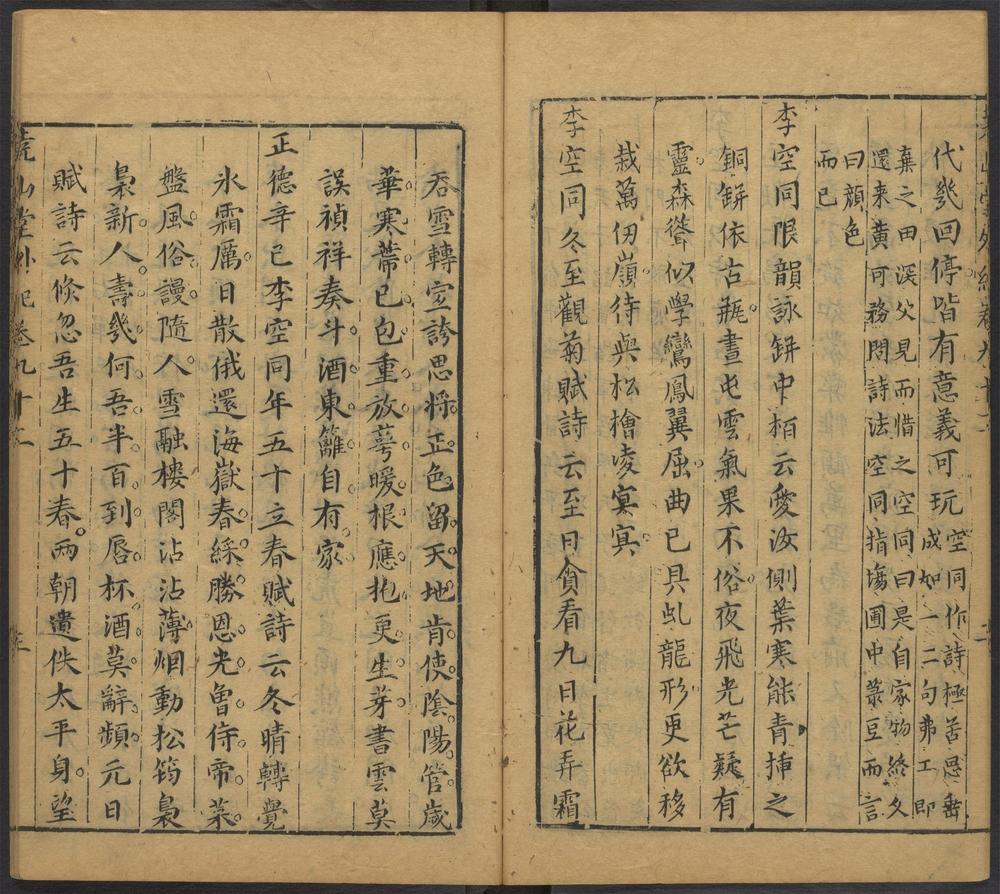 代幾回停皆有意義可玩空同作詩極苦思垂
成如一二句弗工即
棄之田深父見而惜之空同曰是自家物終久
還来黄可務問詩法空同指塲圃中蒙豆而言
曰顔色
而已
李空同限韻詠缾中栢云愛汝側葉寒能青揷之
銅缾依古瓶晝屯雲氣果不俗夜飛光芒疑有
靈森聳似學鸞鳳翼屈曲已具虬龍形更欲移
栽萬仞嶺待與松檜凌冥冥
李空同冬至觀菊賦詩云至日貪看九日花弄霜
呑雪轉堂誇思将正色留天地肯使陰陽管歳
華寒蔕已包重放萼暖根應抱更生芽書雲莫
誤禎祥奏斗酒東籬自有家
正德辛已李空同年五十立春賦詩云冬晴轉覺
氷霜厲日散俄還海嶽春綵勝恩光曽侍帝菜
盤風俗謾隨人雪融樓閣沾沾薄烟動松筠裊
裊新人壽幾何吾半百到唇杯酒莫辭頻元日
賦詩云倐忽吾生五十春兩朝遺佚太平身望